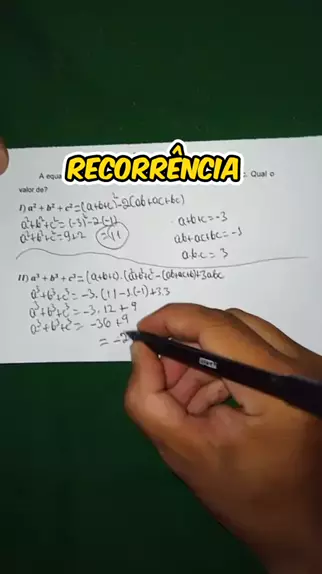 A equa RECORRÊNCIA c. Qual o
valor de?
I) a² + b² + c² = (a+b+c)² - 2(ab+ac+bc)
a²+b²+c² = (-3)² - 2.(-1)
a²+b²+c² = 9+2 = 11
a+b+c = -3
ab+ac+bc = -1
a.b.c = 3
II) a³ + b³ + c³ = (a+b+c).(a²+b²+c² - (ab+ac+bc)) + 3abc
a³+b³+c³ = -3.(11-1.(-1)+3.3
a³+b³+c³ = -3.12 + 9
a³+b³+c³ = -36 + 9
= -2